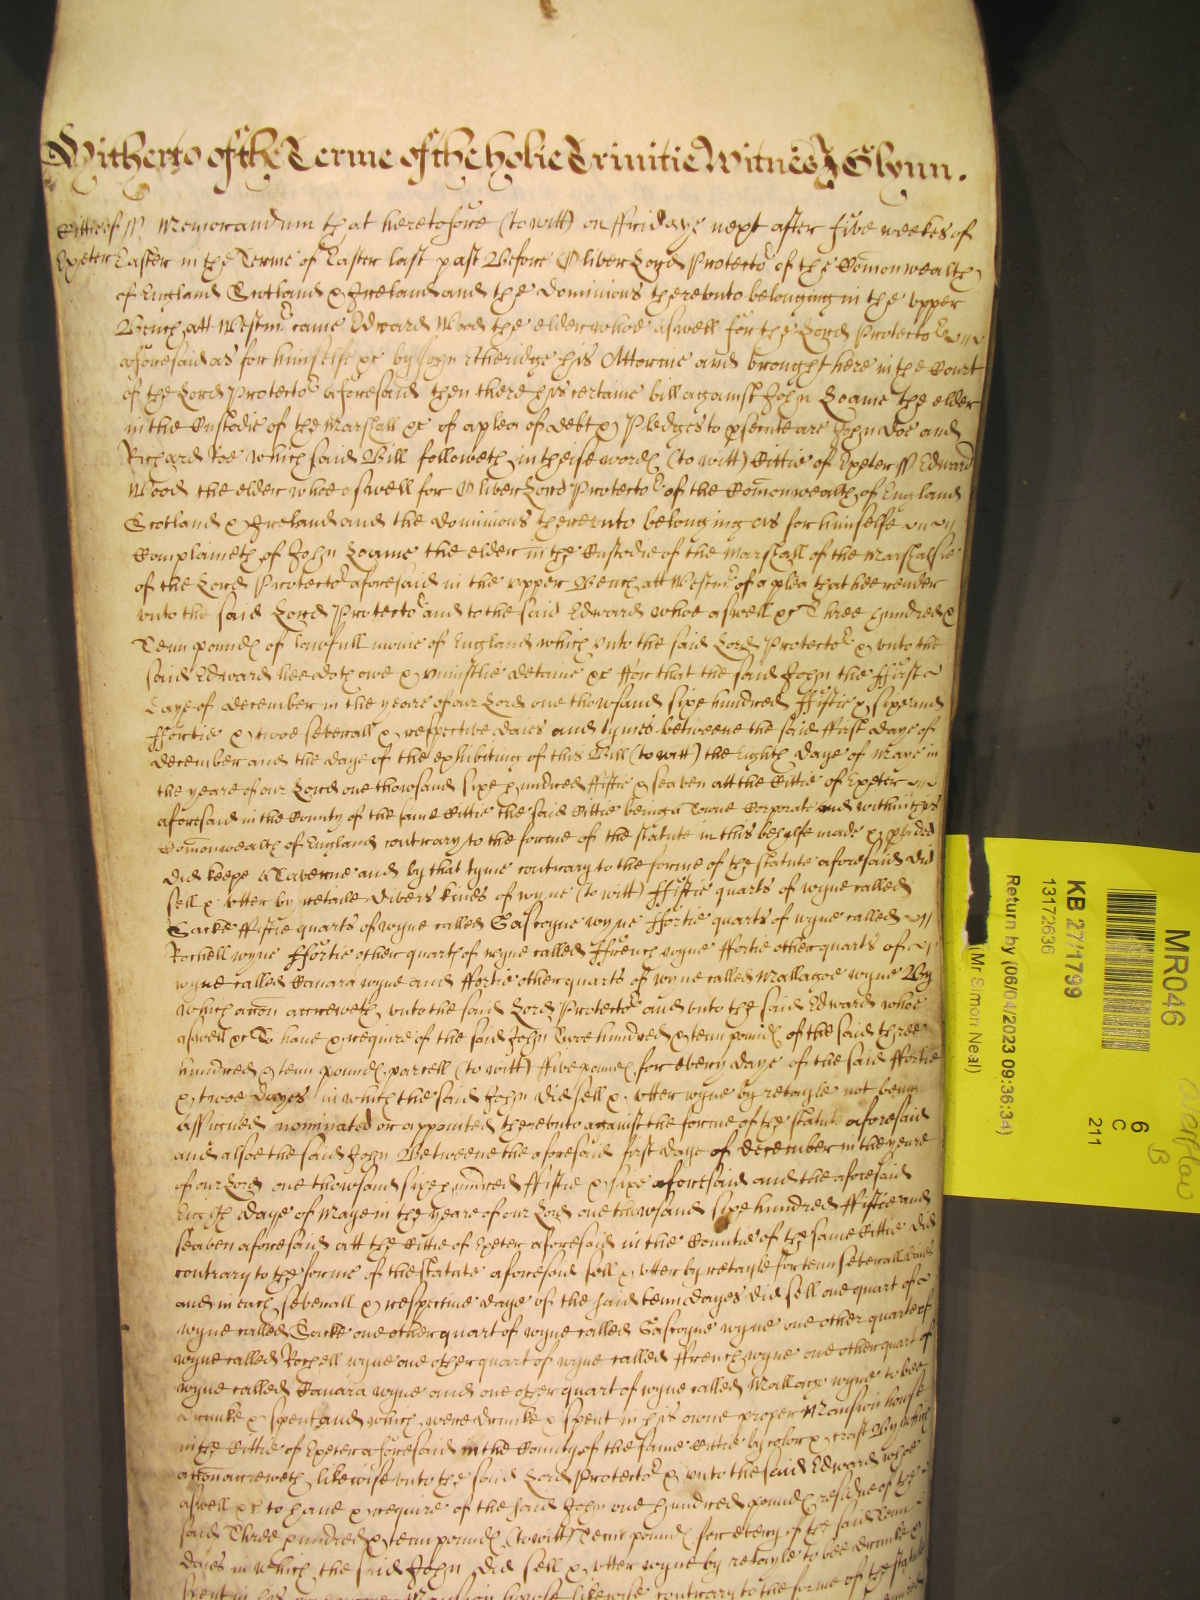 Witherto of the Terme of the holie Trinitie Witnes J Glynn.
Cittie of ss Memorandum that heretofore (to witt) on ffridaye next after five weekes of
Exeter Easter in the Terme of Easter last past Before Oliver Lord Protector of the Comonwealth
of England Scotland & Ireland and the dominions therevnto belonging in the vpper
Bench att Westmr came Edward Wood the elder whoe aswell for the Lord Protector
aforesaid as for himselfe &c by John Etheridge his Attornie and brought here in the Court
of the Lord Protector aforesaid then there his certaine bill against John Loame the elder
in the Custodie of the Marshall &c of a plea of debt & Pledges to psecute are John Doe and
Richard Roe Which said Bill followeth in theise wordes (to witt) Cittie of Exeter ss Edward
Wood the elder whoe aswell for Oliver Lord Protector of the Comonwealth of England
Scotland & Ireland and the dominions therevnto belonging as for himselfe
Complaineth of John Loame the elder in the Custodie of the Marshall of the Marshalsie
of the Lord Protector aforesaid in the vpper Bench att Westmr of a plea that hee render
vnto the said Lord Protector and to the said Edward whoe aswell &c Three hundred &
Tenn poundes of lawfull monie of England which vnto the said Lord Protector & vnto the
said Edward hee doth owe & vniustlie detaine &c ffor that the said John the ffirst
Daye of december in the yeare of our Lord one thowsand sixe hundred ffiftie & sixe and
ffortie & twoe severall & respective daies and tymes betweene the said ffirst daye of
december and the daye of the exhibiting of this Bill (to witt) the Eighth daye of Maye in
the yeare of our Lord one thowsand sixe hundred ffiftie & seaven att the Cittie of Exeter
aforesaid in the County of the same Cittie the said Cittie being a Towne Corporate and within this
Comonwealth of England contrary to the forme of the statute in this behalfe made & pvided
did keepe a Taverne and by that tyme contrary to the forme of the statute aforesaid did
sell & vtter by retaile divers kindes of wyne (to witt) ffiftie quarts of wyne called
Sacke ffiftie quarts of wyne called Gascoyne wyne ffortie quarts of wyne called
Rochell wyne ffortie other quarts of wyne called ffrench wyne ffortie other quarts of
wyne called Canara wyne and ffortie other quarts of wyne called Mallagoe wyne By
which accon accreweth vnto the said Lord Protector and vnto the said Edward whoe
aswell &c To have & require of the said John Twoe hundred & tenn poundes of the said three
hundred & tenn poundes parcell (to witt) ffive poundes for every daye of the said ffortie
& twoe dayes in which the said John did sell & vtter wyne by retayle not being
Assigned nominated or appointed therevnto against the forme of the statute aforesaid
and alsoe the said John Betweene the aforesaid first daye of december in the yeare
of our Lord one thowsand sixe hundred ffiftie & sixe aforesaid and the aforesaid
Eighth daye of Maye in the yeare of our Lord one thowsand sixe hundred ffiftie and
seaven aforesaid att the Cittie of Exeter aforesaid in the Countie of the same Cittie did
contrary to the forme of the statute aforesaid sell & vtter by retayle for tenn severall daies
and in each severall & respective daye of the said tenn dayes did sell one quart of
wyne called Sacke one other quart of wyne called Gascoyne wyne one other quarte of
wyne called Rochell wyne one other quart of wyne called ffrench wyne one other quart of
wyne called Canara wyne and one other quart of wyne called Mallagoe wyne to bee
drunke & spent and which were drunke & spent in his owne proper Mansion house
in the Cittie of Exeter aforesaid in the County of the same Cittie by color & craft By which
accon accreweth likewise vnto the said Lord Protector & vnto the said Edward whoe
aswell &c to have & require of the said John one hundred poundes residue of the
said Three hundred & tenn poundes (to witt) Tenn poundes for every of the said Tenn
daies in which the said John did sell & vtter wyne by retayle to bee drunke &
spent in his Mansion house likewise contrary to the forme of the statute
MR046
6
C
211
KB 27/1799
13172636
(Mr Simon Neal)
Return by (06/04/2023 09:36:34)
B